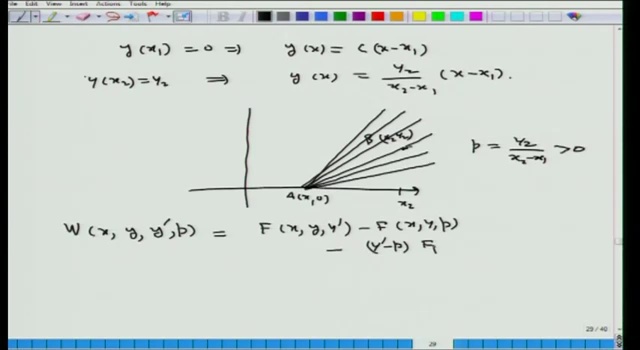 File Edit View Insert Actions Tools Help
y(x₁) = 0 ⇒ y(x) = C(x-x₁)
y(x₂) = y₂ ⇒ y(x) = y₂/(x₂-x₁) (x-x₁).
B(x₂,y₂)
p = y₂/(x₂-x₁) > 0
A(x₁,0)
x₂
W(x, y, y', p) = F(x, y, y') - F(x, y, p)
- (y'-p) F
29 / 40
29